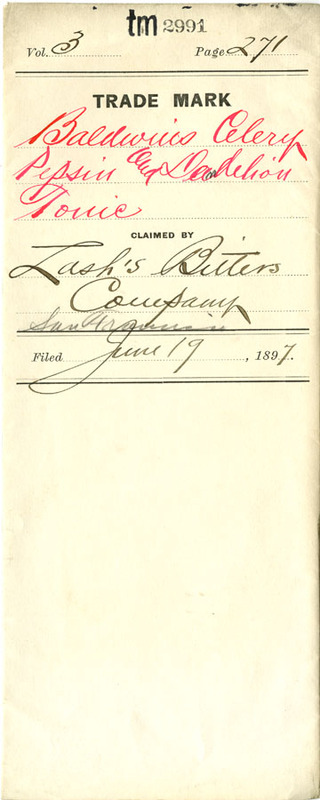 tm 2991
Vol. 3 Page 271
TRADE MARK
Baldwins Celery
Pepsin and Dandelion
Tonic
CLAIMED BY
Lash's Bitters
Company
San Francisco
Filed June 19, 1897.